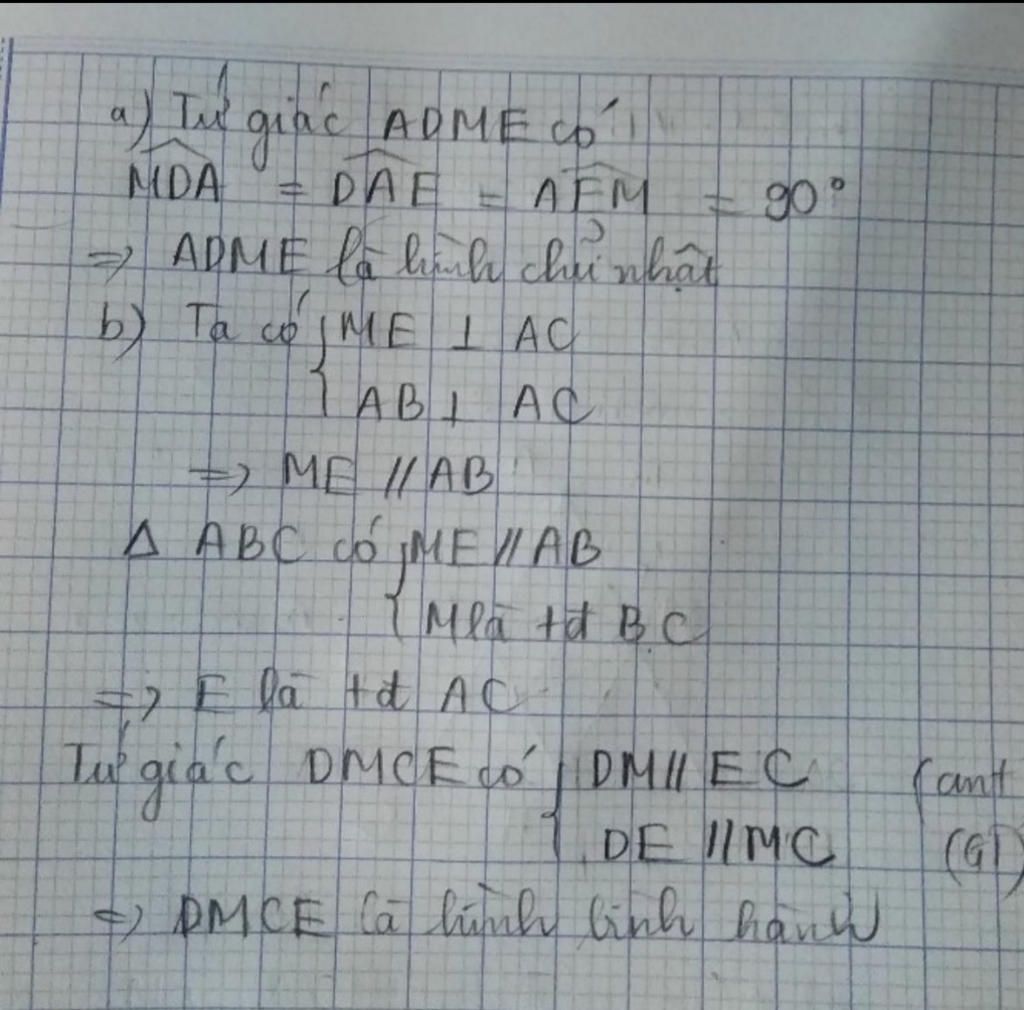 a) Tứ giác ADME có
MDA = DAE = AEM = 90°
=> ADME là hình chử nhật
b) Ta có { ME ⊥ AC
AB ⊥ AC
=> ME // AB
Δ ABC có { ME // AB
M là tđ BC
=> E là tđ AC
Tứ giác DMCE có { DM // EC (cmt
DE // MC (GT)
=> DMCE là hình bình hành